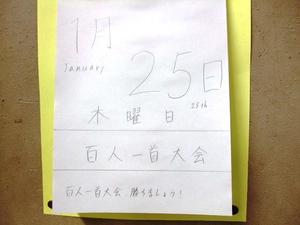 1月
January
25日
25th
木曜日
百人一首大会
百人一首大会 勝ちましょう!